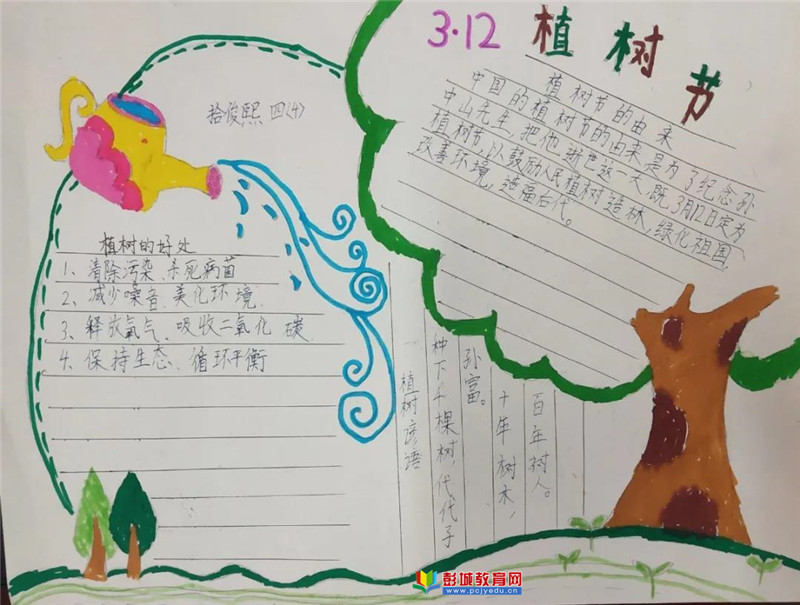 3·12 植树节
植树节的由来
中国的植树节的由来是为了纪念孙
中山先生,把他逝世这一天,既3月12日定为
植树节,以鼓励人民植树造林,绿化祖国,
改善环境,造福后代。
拾俊熙 四(4)
植树的好处
1、清除污染、杀死病菌
2、减少噪音、美化环境、
3、释放氧气、吸收二氧化碳、
4、保持生态、循环平衡
植树谚语
种下千棵树,代代子
孙富。
十年树木,
百年树人。
彭城教育网
www.pcjyedu.cn